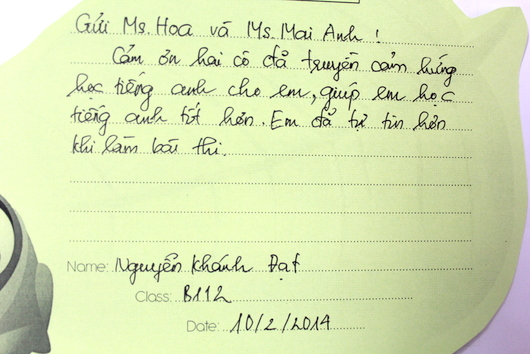 Gửi Ms. Hoa và Ms. Mai Anh!
Cảm ơn hai cô đã truyền cảm hứng
học tiếng anh cho em, giúp em học
tiếng anh tốt hơn. Em đã tự tin hơn
khi làm bài thi.
Name: Nguyễn Khánh Đạt
Class: B112
Date: 10/2/2014